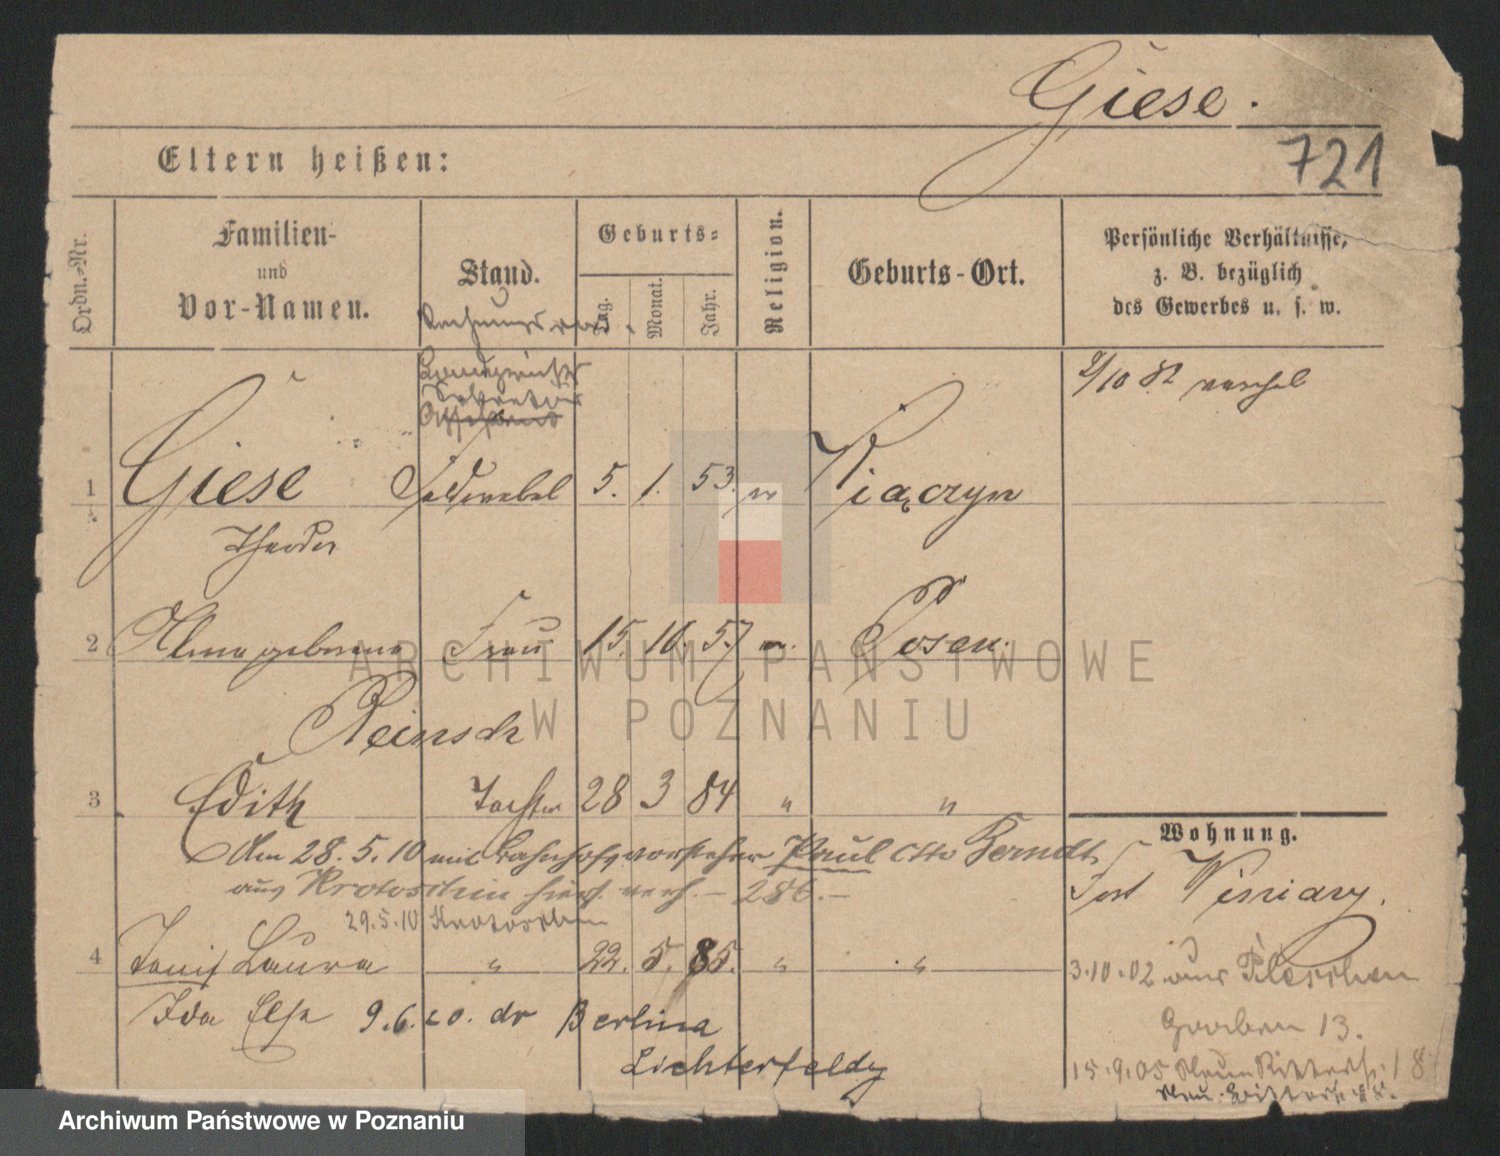 Giese.
721
Eltern heißen:
Ordn.-Nr.
Familien-
und
Vor-Namen.
Stand.
Geburts-
Tag.
Monat.
Jahr.
Religion.
Geburts-Ort.
Persönliche Verhältnisse,
z. B. bezüglich
des Gewerbes u. s. w.
Landgerichts
Sekretär
1 Giese Feldwebel 5. 1. 53. ev Kiączyn
Theodor
2 Alma geborene Frau 15. 10. 57 ev. Posen.
Reinsch
3 Edith Tochter 28 3 84 " "
Wohnung.
Am 28.5.10 mit Bahnhofsvorsteher Paul Otto Berndt
aus Krotoschin hier verh. – 286. –
Fort Winiary.
29.5.10 Krotoschin
4 Toni Laura " 22. 5. 85. " "
3.10.02 aus Pleschen
Ida Elsa 9.6.20. dr Berlina
Graben 13.
Lichterfeldy
15.9.05 Neue Ritterst. 18
ARCHIWUM PAŃSTWOWE
W POZNANIU
Archiwum Państwowe w Poznaniu